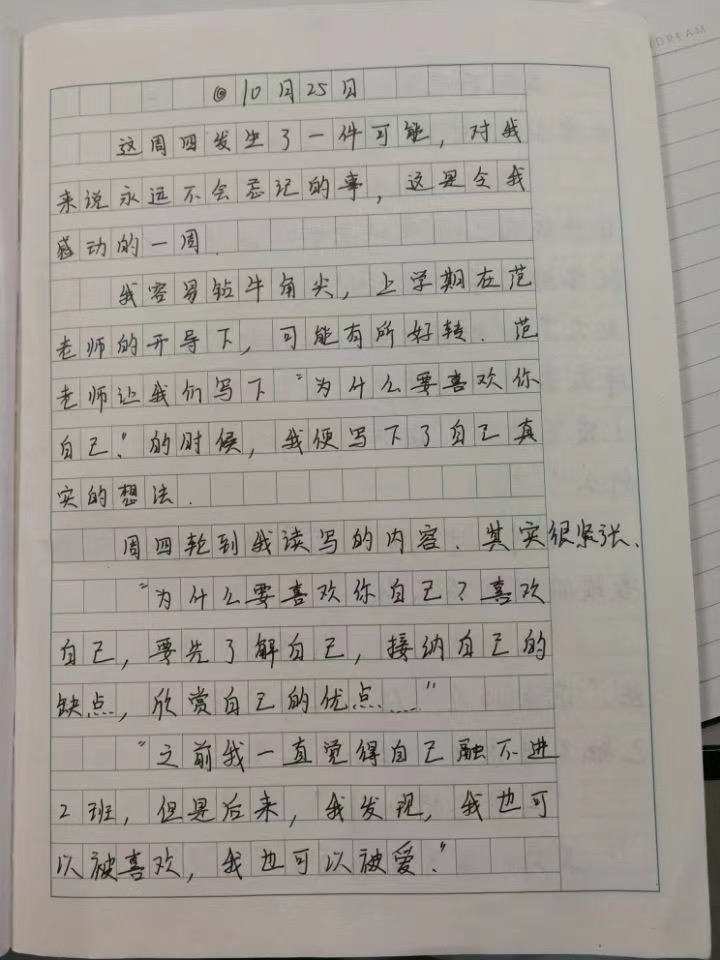 ◎10月25日
这周四发生了一件可能，对我
来说永远不会忘记的事，这是令我
感动的一周.
我容易钻牛角尖，上学期在范
老师的开导下，可能有所好转.范
老师让我们写下“为什么要喜欢你
自己.”的时候，我便写下了自己真
实的想法.
周四轮到我读写的内容.其实很紧张.
“为什么要喜欢你自己？喜欢
自己，要先了解自己，接纳自己的
缺点，欣赏自己的优点……”
“之前我一直觉得自己融不进
2班，但是后来，我发现，我也可
以被喜欢，我也可以被爱.”
DREAM